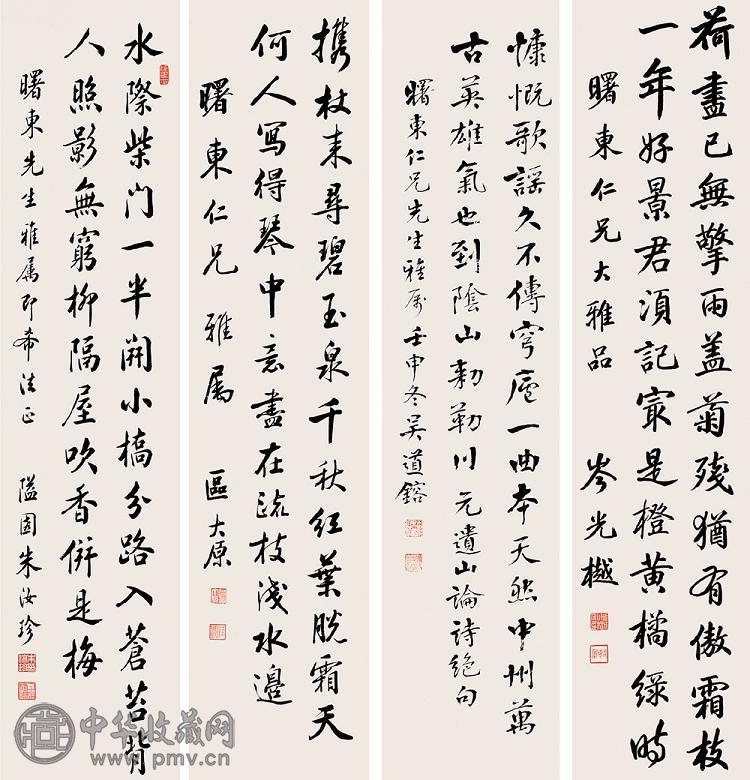 荷盡已無擎雨蓋菊殘猶有傲霜枝
一年好景君須記㝡是橙黃橘綠時
曙東仁兄大雅品 岑光樾
慷慨歌謠久不傳穹廬一曲本天然中州萬
古英雄氣也到陰山勅勒川 元遺山論詩絕句
曙東仁兄先生雅属 壬申冬吳道鎔
攜杖来尋碧玉泉千秋紅葉脫霜天
何人寫得琴中意盡在疏枝淺水邊
曙東仁兄 雅属 區大原
水際柴門一半開小橋分路入蒼苔背
人照影無窮柳隔屋吹香併是梅
曙東先生雅属即希法正 隘園朱汝珍
中华收藏网
www.pmv.cn